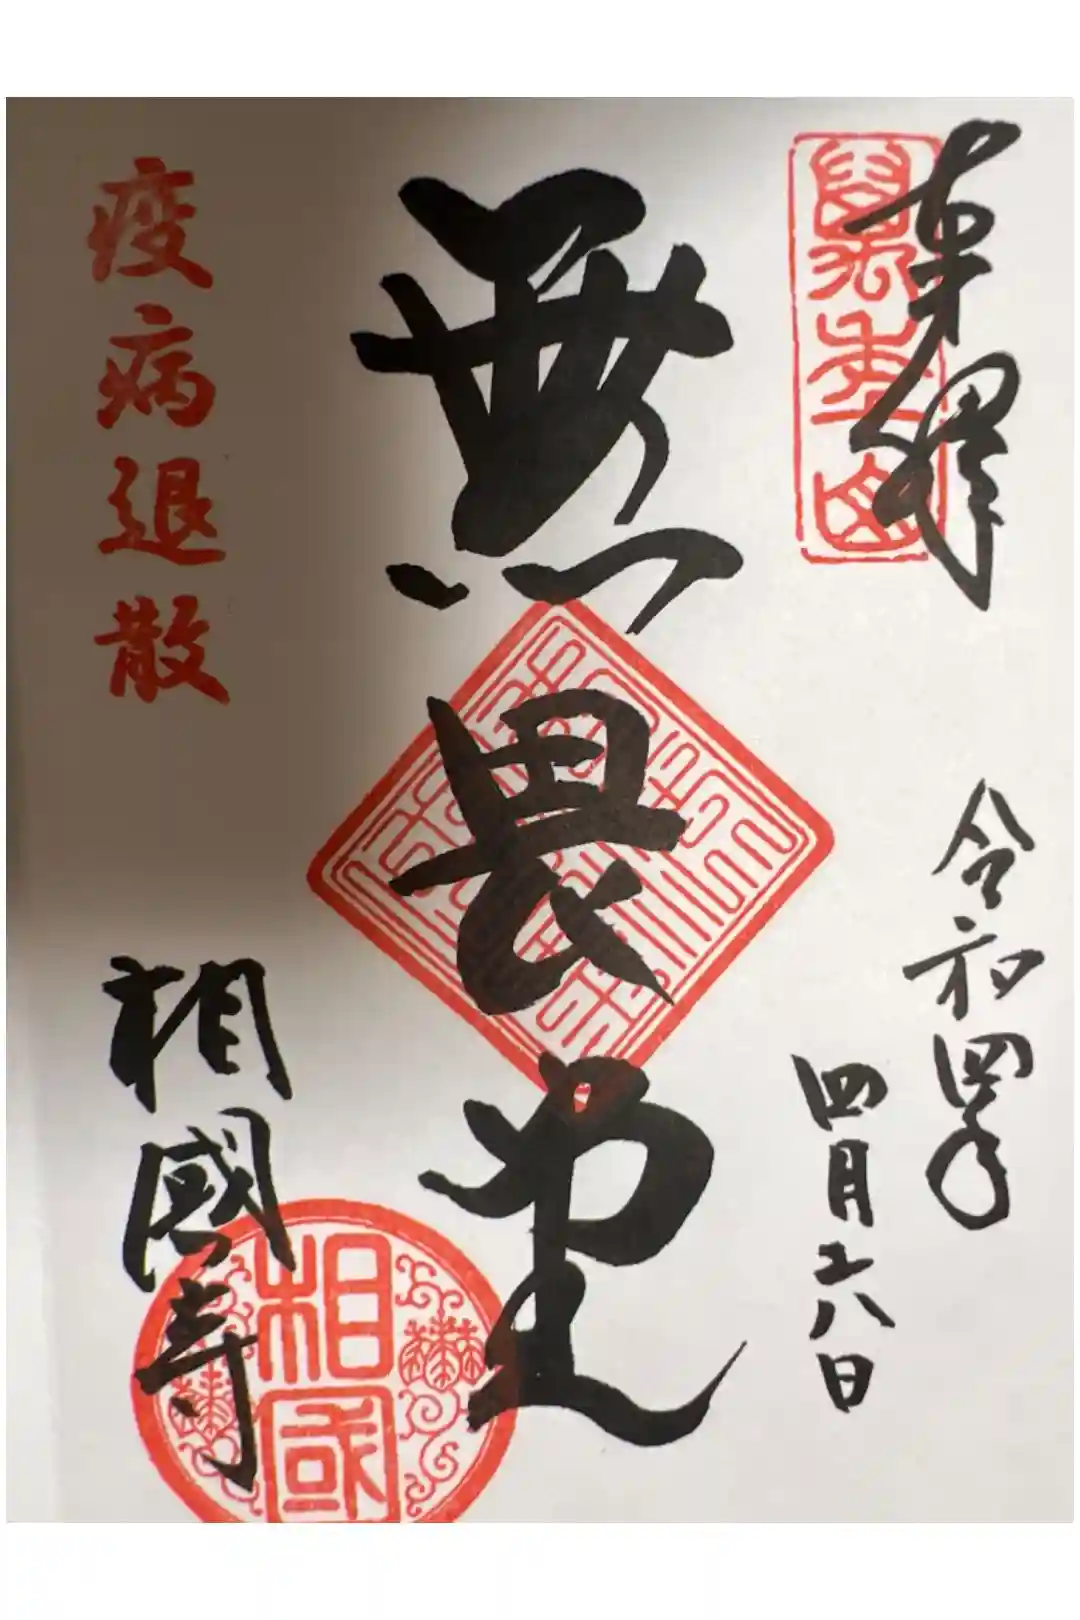 奉拝
萬年山
令和四年
四月十六日
無畏堂
疫病退散
相國寺
相国